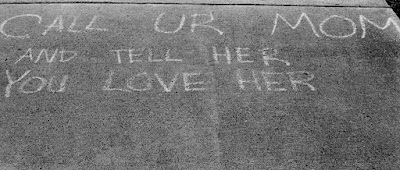 CALL UR MOM
AND TELL HER
YOU LOVE HER